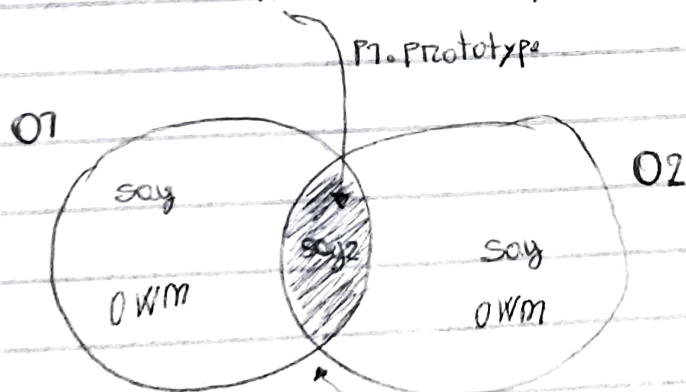 P1.prototype
O1
O2
say
say2
say
own
own